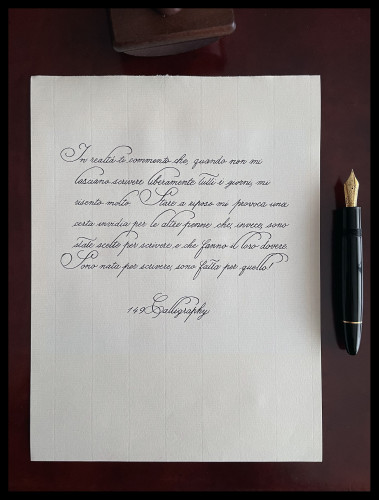 In realtà ti commento che, quando non mi
lasciano scrivere liberamente tutti i giorni, mi
risento molto. Stare a riposo mi provoca una
certa invidia per le altre penne che, invece, sono
state scelte per scrivere e che fanno il loro dovere.
Sono nata per scrivere, sono fatta per quello!
149Calligraphy